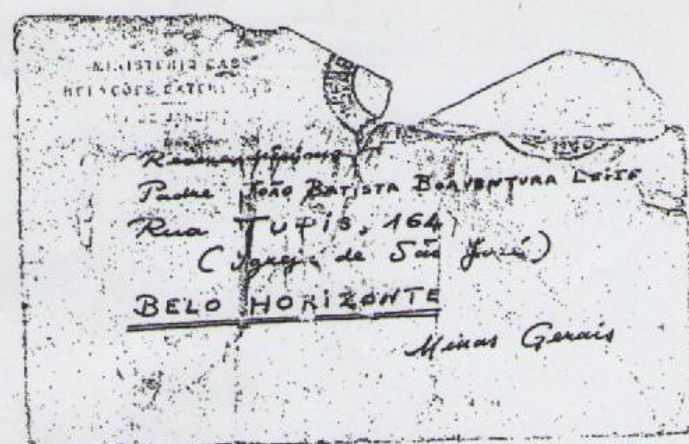 MINISTERIO DAS
RELAÇÕES EXTERIORES
RIO DE JANEIRO
Padre João Batista Boaventura Leite
Rua Tupis, 164
(Igreja de São José)
BELO HORIZONTE
Minas Gerais